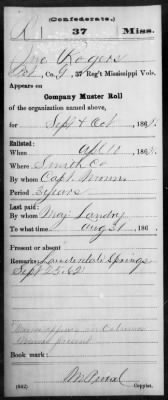 (Confederate.)
R 37 Miss.
Jno Rogers
Pvt, Co. G, 37 Reg't Mississippi Vols.
Appears on
Company Muster Roll
of the organization named above,
for Sept & Oct, 186
Enlisted:
When 186
Where Smith Co
By whom Capt.
Period 3 years
Last paid:
By whom Maj. Landry
To what time Aug 31, 186
Present or absent
Remarks: Lauderdale Springs
Sept 25, 62
Book mark:
(642) Copyist.